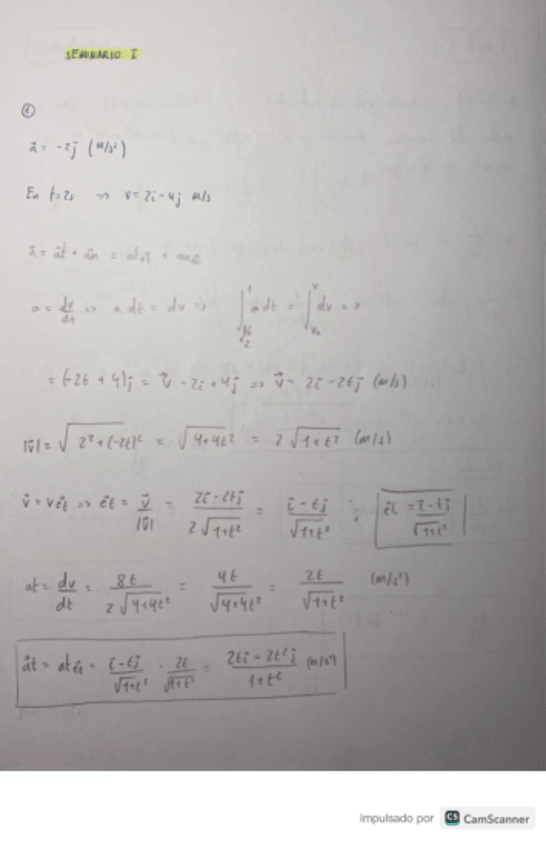 SEMINARIO I
①
ā = -2j (m/s²)
En t=2s => v = 2i - 4j m/s
ā = āt + ān = at êt + an
a = dv/dt => a dt = dv => ∫ a dt = ∫ dv =>
= (-2t + 4)j = v̄ - 2i + 4j => v̄ = 2i - 2tj (m/s)
|v̄| = √(2² + (-2t)²) = √(4+4t²) = 2√(1+t²) (m/s)
v̄ = v êt => êt = v̄/|v̄| = (2i - 2tj)/(2√(1+t²)) = (i - tj)/√(1+t²) ; êt = (i - tj)/√(1+t²)
at = dv/dt = 8t/(2√(4+4t²)) = 4t/√(4+4t²) = 2t/√(1+t²) (m/s²)
āt = at êt = (i - tj)/√(1+t²) · 2t/√(1+t²) = (2ti - 2t²j)/(1+t²) (m/s²)
impulsado por CS CamScanner